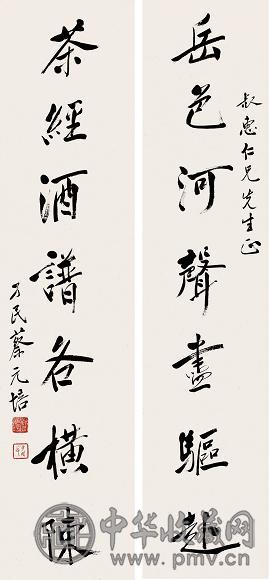 叔惠仁兄先生正
岳色河聲盡驅
茶經酒譜各橫陳
孑民蔡元培
中华收藏网
www.pmv.cn